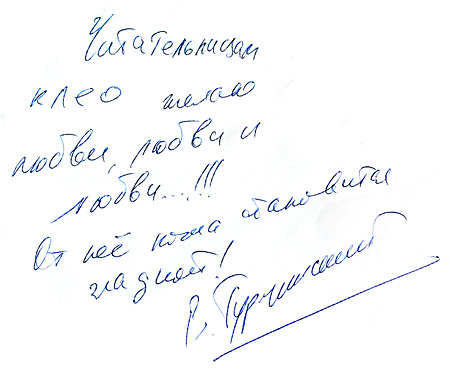 Читательницам
клео желаю
любви, любви и
любви...!!!
От неё кожа становится
гладкой!